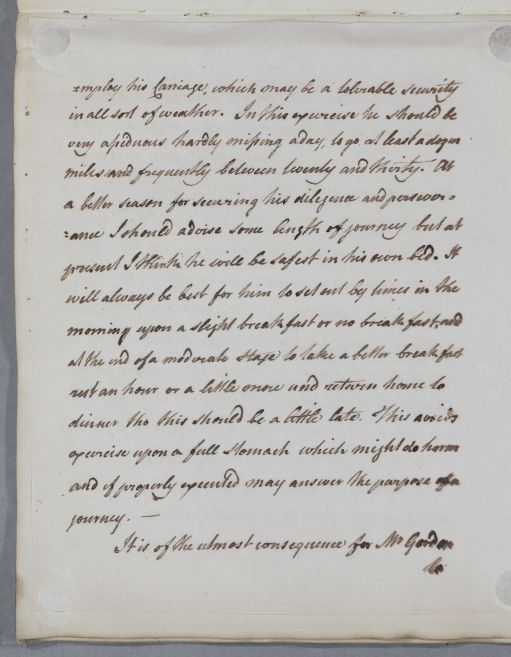 employ his Carriage, which may be a tolerable security
in all sort of weather. In this exercise he should be
very assiduous hardly missing a day, to go, at least a dozen
miles and frequently between twenty and thirty. At
a better season for securing his diligence and persever=
=ance I should advise some length of journey but at
present I think he will be safest in his own bed. It
will always be best for him to set out by times in the
morning upon a slight breakfast or no breakfast, and
at the end of a moderate stage to take a better breakfast
rest an hour or a little more and return home to
dinner tho this should be a little late. This avoids
exercise upon a full stomach which might do harm
and if properly executed may answer the purpose of a
journey. —
It is of the utmost consequence for Mr Gordon
to